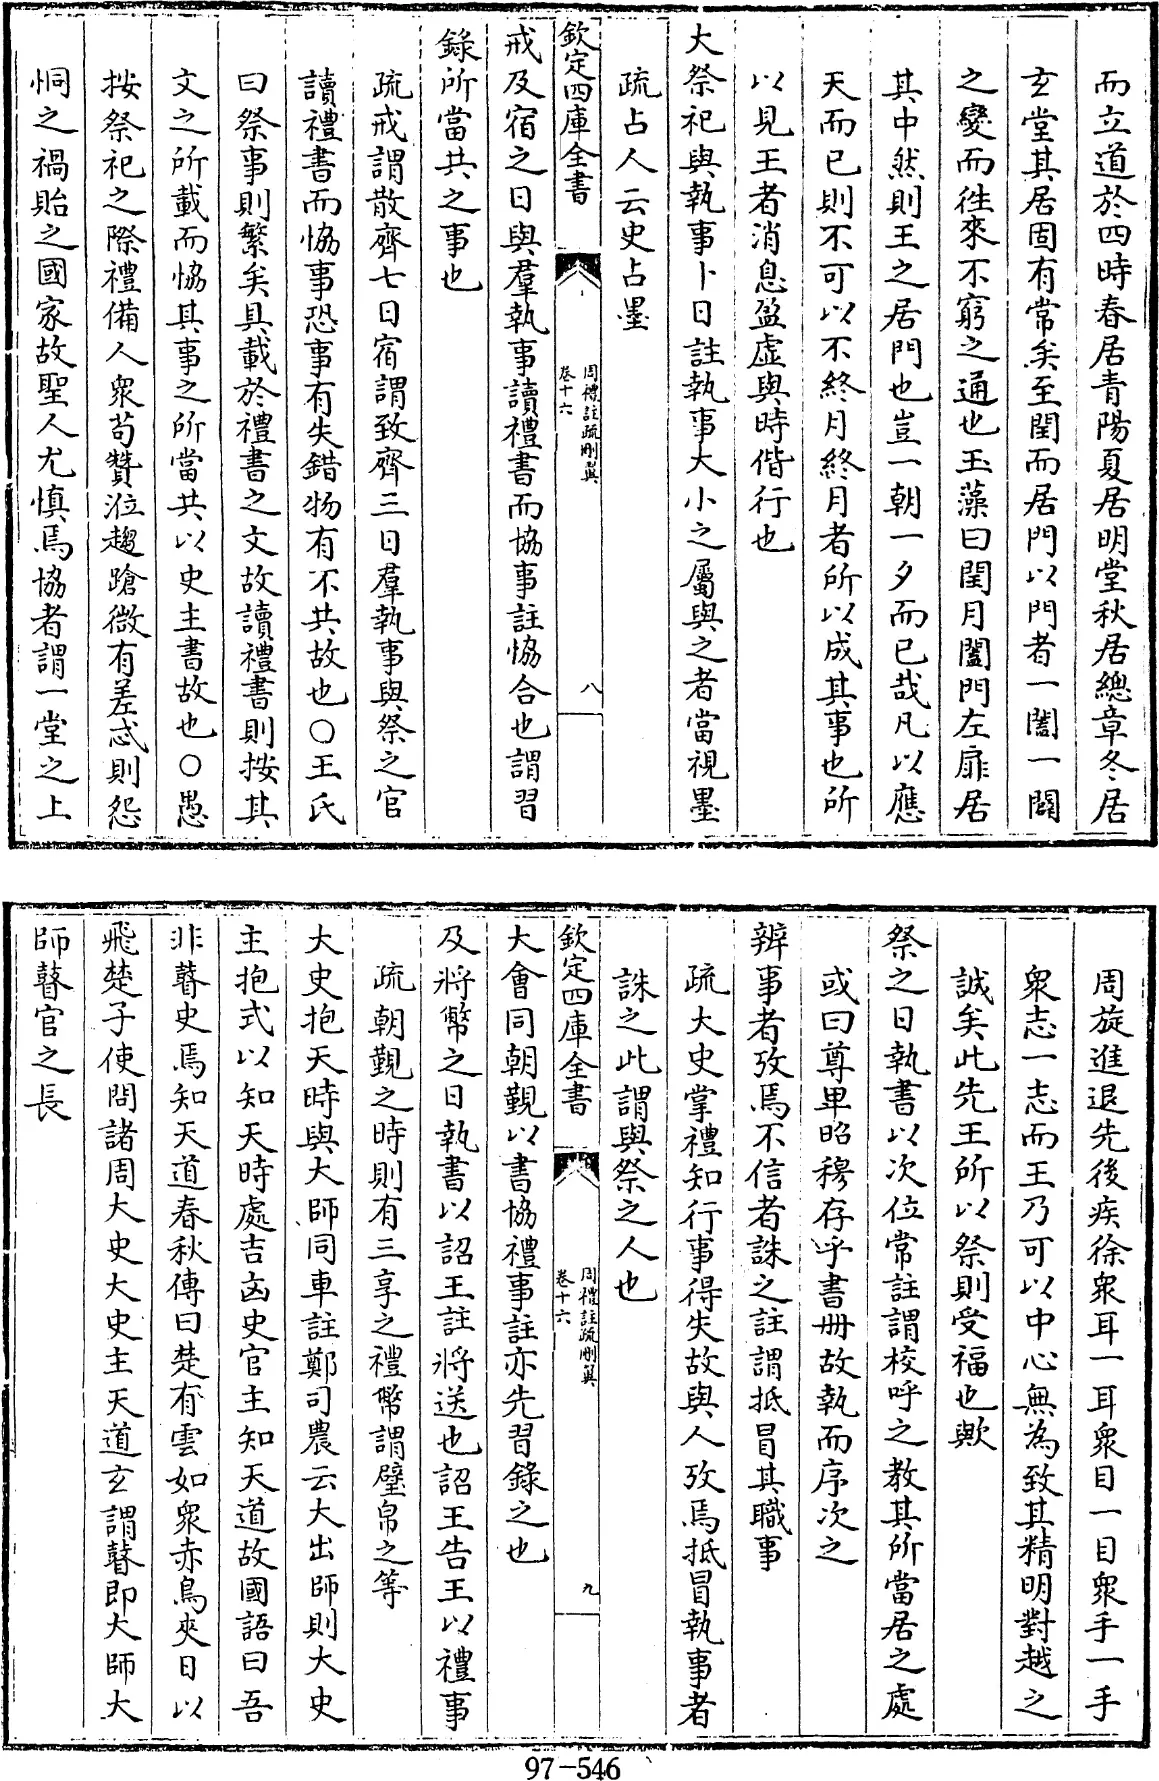 而立道於四時春居青陽夏居明堂秋居總章冬居
玄堂其居固有常矣至閏而居門以門者一闔一闢
之變而徃來不窮之通也玉藻曰閏月闔門左扉居
其中然則王之居門也豈一朝一夕而已哉凡以應
天而已則不可以不終月終月者所以成其事也所
以見王者消息盈虛與時偕行也
大祭祀與執事卜日註執事大小之屬與之者當視墨
疏占人云史占墨
欽定四庫全書
周禮註疏刪翼
卷十六
八
戒及宿之日與羣執事讀禮書而協事註恊合也謂習
錄所當共之事也
疏戒謂散齊七日宿謂致齊三日羣執事與祭之官
讀禮書而恊事恐事有失錯物有不共故也○王氏
曰祭事則繁矣具載於禮書之文故讀禮書則按其
文之所載而恊其事之所當共以史主書故也○愚
按祭祀之際禮備人衆苟贊涖趨蹌微有差忒則怨
恫之禍貽之國家故聖人尤慎焉協者謂一堂之上
周旋進退先後疾徐衆耳一耳衆目一目衆手一手
衆志一志而王乃可以中心無為致其精明對越之
誠矣此先王所以祭則受福也歟
祭之日執書以次位常註謂校呼之教其所當居之處
或曰尊卑昭穆存乎書冊故執而序次之
辨事者攷焉不信者誅之註謂抵冒其職事
疏大史掌禮知行事得失故與人攷焉抵冒執事者
誅之此謂與祭之人也
欽定四庫全書
周禮註疏刪翼
卷十六
九
大會同朝覲以書協禮事註亦先習錄之也
及將幣之日執書以詔王註將送也詔王告王以禮事
疏朝覲之時則有三享之禮幣謂璧帛之等
大史抱天時與大師同車註鄭司農云大出師則大史
主抱式以知天時處吉凶史官主知天道故國語曰吾
非瞽史焉知天道春秋傳曰楚有雲如衆赤鳥夾日以
飛楚子使問諸周大史大史主天道玄謂瞽即大師大
師瞽官之長
97-546